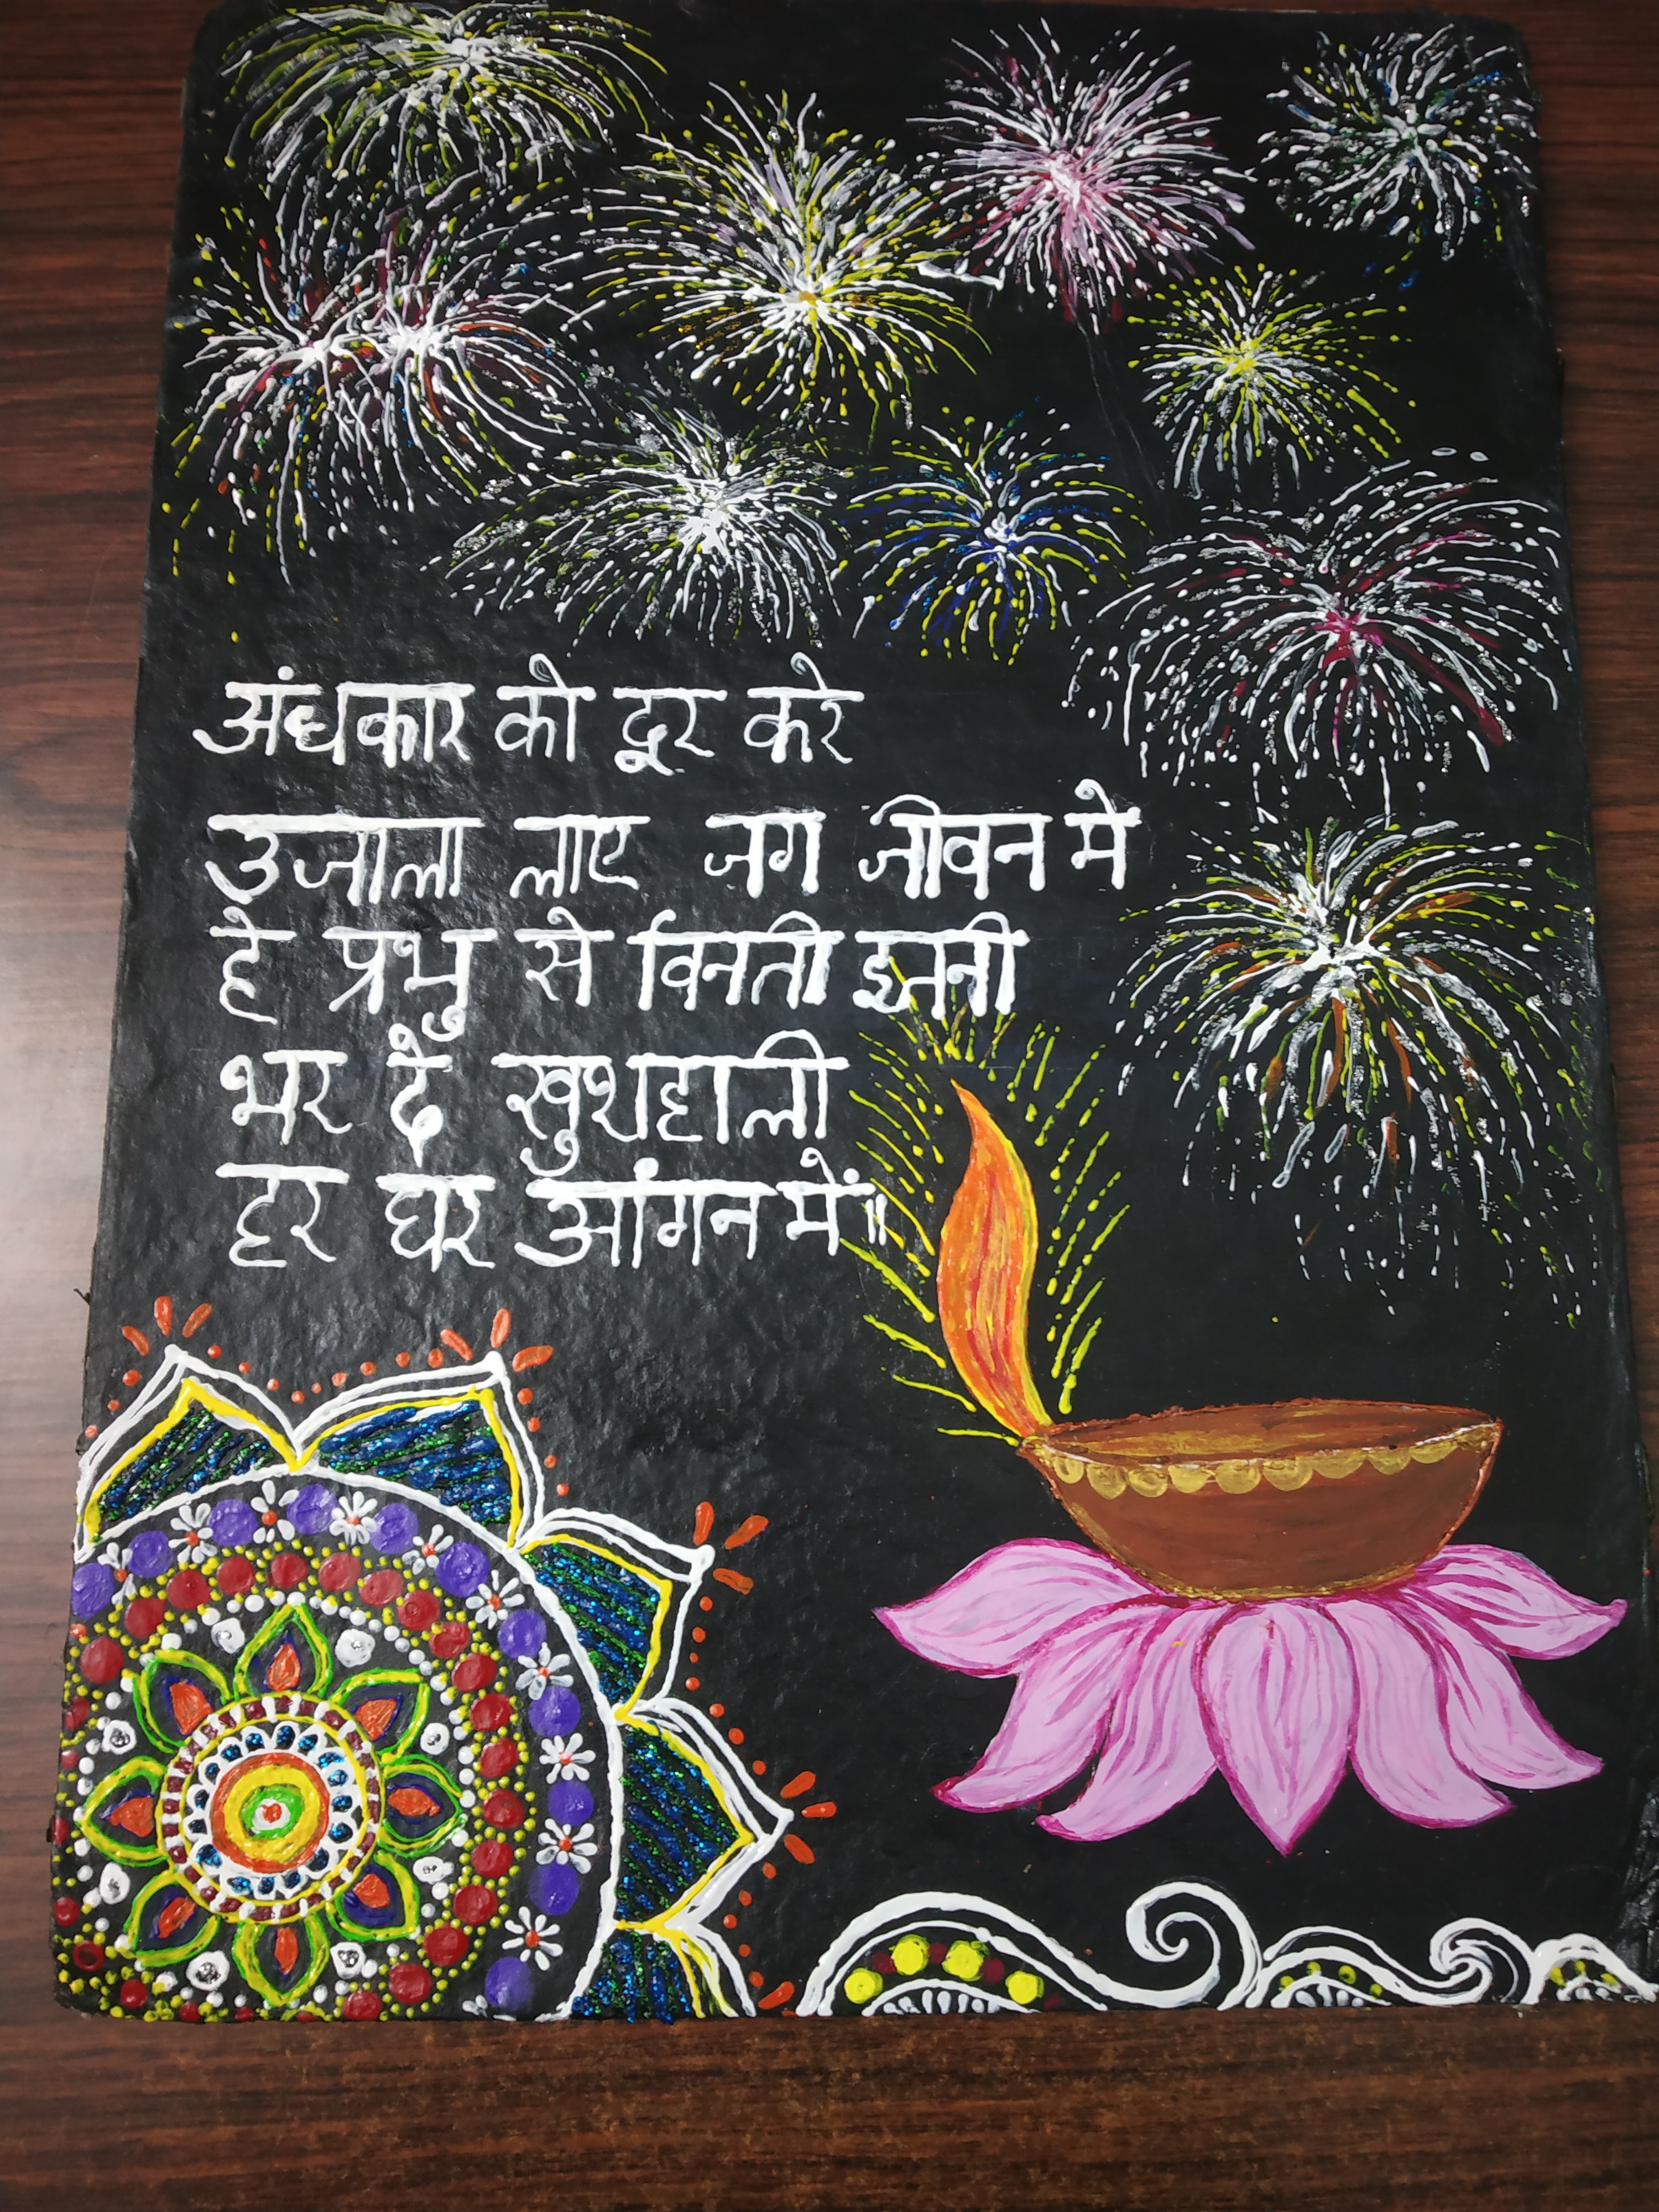 अंधकार को दूर करे
उजाला लाए जग जीवन मे
हे प्रभु से विनती इतनी
भर दे खुशहाली
हर घर आंगन में॥